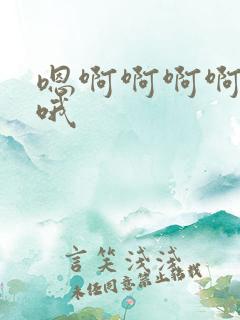 嗯啊啊啊啊
哦
言笑浅浅
未经同意禁止转载